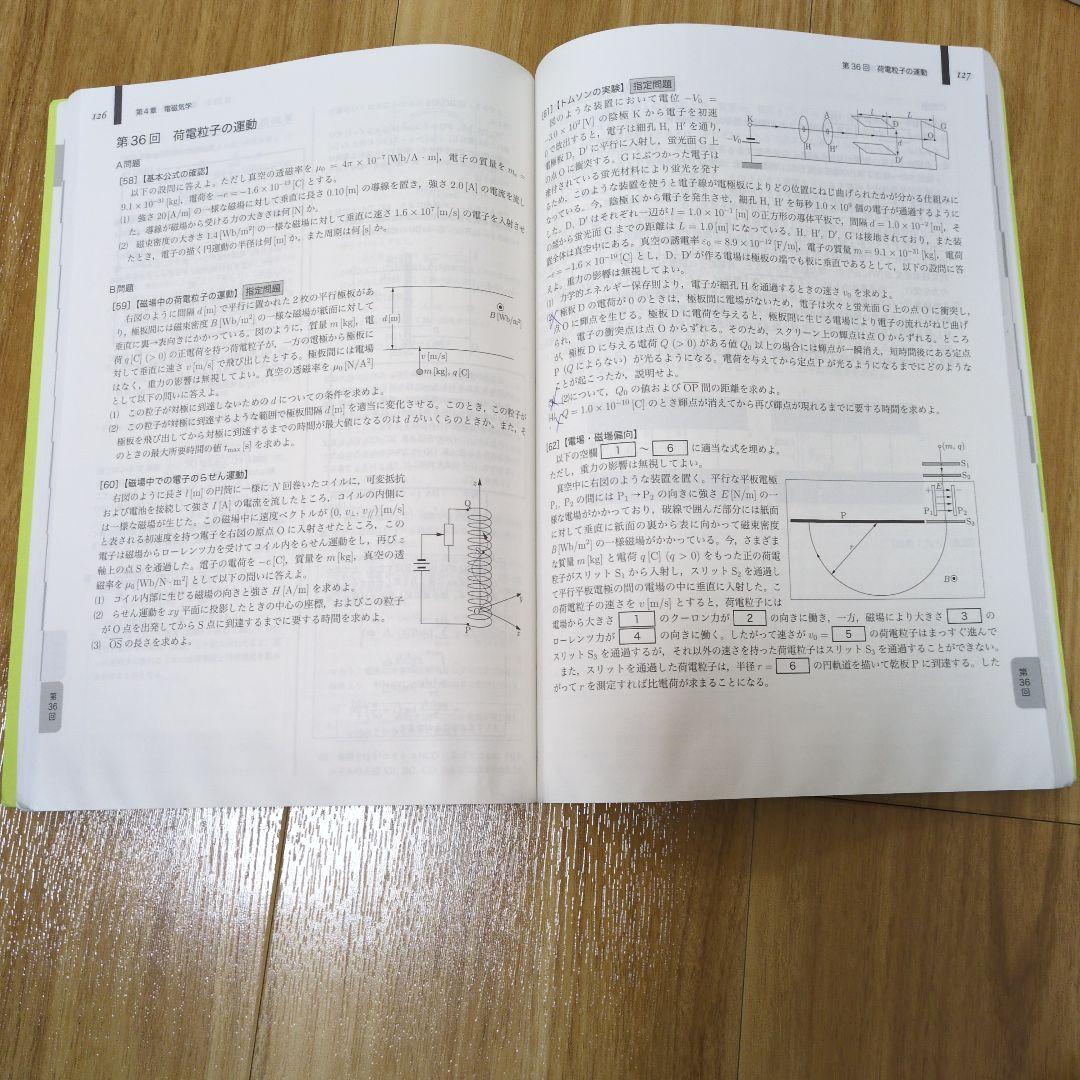 126 第4章 電磁気学
第36回 荷電粒子の運動
A問題
[58]【基本公式の確認】
以下の設問に答えよ。ただし真空の透磁率を μ₀ = 4π × 10⁻⁷ [Wb/A・m]，電子の質量を mₑ =
9.1 × 10⁻³¹ [kg]，電荷を −e = −1.6 × 10⁻¹⁹ [C] とする。
(1) 強さ 20 [A/m] の一様な磁場に対して垂直に長さ 0.10 [m] の導線を置き，強さ 2.0 [A] の電流を流し
た。導線が磁場から受ける力の大きさは何 [N] か。
(2) 磁束密度の大きさ 1.4 [Wb/m²] の一様な磁場に対して垂直に速さ 1.6 × 10⁷ [m/s] の電子を入射させ
たとき，電子の描く円運動の半径は何 [m] か。また周期は何 [s] か。
B問題
[59]【磁場中の荷電粒子の運動】 指定問題
右図のように間隔 d [m] で平行に置かれた2枚の平行極板があ
り，極板間には磁束密度 B [Wb/m²] の一様な磁場が紙面に対して
垂直に裏→表向きにかかっている。図のように，質量 m [kg]，電
荷 q [C] (> 0) の正電荷を持つ荷電粒子が，一方の電極から極板に
対して垂直に速さ v [m/s] で飛び出したとする。極板間には電場
はなく，重力の影響は無視してよい。真空の透磁率を μ₀ [N/A²]
として以下の問いに答えよ。
(1) この粒子が対極に到達しないための d についての条件を求めよ。
(2) この粒子が対極に到達するような範囲で極板間隔 d [m] を適当に変化させる。このとき，この粒子が
極板を飛び出してから対極に到達するまでの時間が最大値になるのは d がいくらのときか。また，そ
のときの最大所要時間の値 tmax [s] を求めよ。
d [m]
B [Wb/m²]
v [m/s]
m [kg], q [C]
[60]【磁場中での電子のらせん運動】
右図のように長さ l [m] の円筒に一様に N 回巻いたコイルに，可変抵抗
および電池を接続して強さ I [A] の電流を流したところ，コイルの内側に
は一様な磁場が生じた。この磁場中に速度ベクトルが (0, v⊥, v∥) [m/s]
と表される初速度を持つ電子を右図の原点 O に入射させたところ，この
電子は磁場からローレンツ力を受けてコイル内をらせん運動をし，再び z
軸上の点 S を通過した。電子の電荷を −e [C]，質量を m [kg]，真空の透
磁率を μ₀ [Wb/N・m²] として以下の問いに答えよ。
(1) コイル内部に生じる磁場の向きと強さ H [A/m] を求めよ。
(2) らせん運動を xy 平面に投影したときの中心の座標，およびこの粒子
が O 点を出発してから S 点に到達するまでに要する時間を求めよ。
(3) OS の長さを求めよ。
z
Q
P
第36回
第36回 荷電粒子の運動 127
【トムソンの実験】 指定問題
図のような装置において電位 −V₀ =
3.0 × 10² [V] の陰極 K から電子を初速
で放出すると，電子は細孔 H, H′ を通り，
電極板 D, D′ に平行に入射し，蛍光面 G 上
の点 O に衝突する。G にぶつかった電子は
塗付されている蛍光材料により蛍光を発す
るため，このような装置を使うと電子線が電極板によりどの位置にねじ曲げられたかが分かる仕組みに
なっている。今，陰極 K から電子を発生させ，細孔 H, H′ を毎秒 1.0 × 10⁹ 個の電子が通過するように
した。D, D′ はそれぞれ一辺が l = 1.0 × 10⁻¹ [m] の正方形の導体平板で，間隔 d = 1.0 × 10⁻² [m]，そ
の端から蛍光面 G までの距離は L = 1.0 [m] になっている。H, H′, D′, G は接地されており，また装
置全体は真空中にある。真空の誘電率 ε₀ = 8.9 × 10⁻¹² [F/m]，電子の質量 m = 9.1 × 10⁻³¹ [kg]，電荷
−e = −1.6 × 10⁻¹⁹ [C] とし，D, D′ が作る電場は極板の端でも板に垂直であるとして，以下の設問に答
えよ。重力の影響は無視してよい。
力学的エネルギー保存則より，電子が細孔 H を通過するときの速さ v₀ を求めよ。
極板 D の電荷が 0 のときは，極板間に電場がないため，電子は次々と蛍光面 G 上の点 O に衝突し，
点 O に輝点を生じる。極板 D に電荷を与えると，極板間に生じる電場により電子の流れがねじ曲げ
られ，電子の衝突点は点 O からずれる。そのため，スクリーン上の輝点は点 O からずれる。ところ
が，極板 D に与える電荷 Q (> 0) がある値 Q₀ 以上の場合には輝点が一瞬消え，短時間後にある定点
P (Q によらない) が光るようになる。電荷を与えてから定点 P が光るようになるまでにどのような
ことが起こったか，説明せよ。
(2)について，Q₀ の値および OP 間の距離を求めよ。
Q = 1.0 × 10⁻¹⁰ [C] のとき輝点が消えてから再び輝点が現れるまでに要する時間を求めよ。
K
−V₀
H
H′
A
D
D′
d
l
L
G
O
[62]【電場・磁場偏向】
以下の空欄 1 〜 6 に適当な式を埋めよ。
ただし，重力の影響は無視してよい。
真空中に右図のような装置を置く。平行な平板電極
P₁, P₂ の間には P₁→P₂ の向きに強さ E [N/m] の一
様な電場がかかっており，破線で囲んだ部分には紙面
に対して垂直に紙面の裏から表に向かって磁束密度
B [Wb/m²] の一様磁場がかかっている。今，さまざま
な質量 m [kg] と電荷 q [C] (q > 0) をもった正の荷電
粒子がスリット S₁ から入射し，スリット S₂ を通過し
て平行平板電極の間の電場の中に垂直に入射した。こ
の荷電粒子の速さを v [m/s] とすると，荷電粒子には
電場から大きさ 1 のクーロン力が 2 の向きに働き，一方，磁場により大きさ 3 の
ローレンツ力が 4 の向きに働く。したがって速さが v₀ = 5 の荷電粒子はまっすぐ進んで
スリット S₃ を通過するが，それ以外の速さを持った荷電粒子はスリット S₃ を通過することができない。
また，スリットを通過した荷電粒子は，半径 r = 6 の円軌道を描いて乾板 P に到達する。した
がって r を測定すれば比電荷が求まることになる。
(m, q)
S₁
S₂
E
P₁
P₂
S₃
P
r
B
第36回